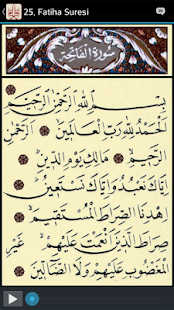 25, Fatiha Suresi
سُورَةُ الْفَاتِحَةِ
بِسْمِ اللّٰهِ الرَّحْمٰنِ الرَّحِيمِ
اَلْحَمْدُ لِلّٰهِ رَبِّ الْعَالَمِينَ اَلرَّحْمٰنِ
الرَّحِيمِ مَالِكِ يَوْمِ الدِّينِ
اِيَّاكَ نَعْبُدُ وَاِيَّاكَ نَسْتَعِينُ
اِهْدِنَا الصِّرَاطَ الْمُسْتَقِيمَ
صِرَاطَ الَّذِينَ اَنْعَمْتَ عَلَيْهِمْ غَيْرِ
الْمَغْضُوبِ عَلَيْهِمْ وَلَا الضَّالِّينَ